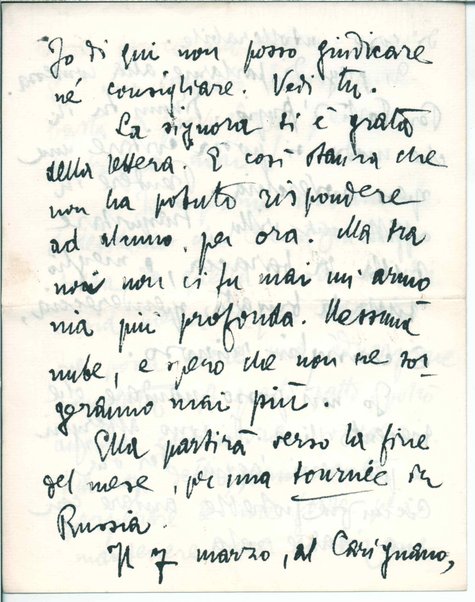 Io di qui non posso giudicare
né consigliare. Vedi tu.
La signora ti è grata
della lettera. È così stanca che
non ha potuto rispondere
ad alcuno, per ora. Ma tra
noi non ci fu mai un'armo
nia più profonda. Nessuna
nube, e spero che non ne sor-
geranno mai più.
Ella partirà verso la fine
del mese, per una tournée in
Russia.
Il 7 marzo, al Carignano,